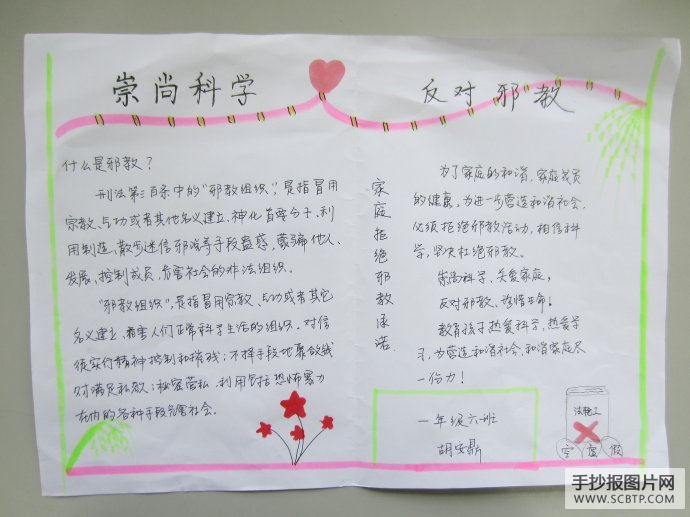 崇尚科学
反对邪教
什么是邪教?
刑法第三百条中的"邪教组织",是指冒用
宗教、气功或者其他名义建立、神化首要分子,利
用制造、散步迷信邪说等手段蛊惑,蒙骗他人,
发展、控制成员,危害社会的非法组织。
"邪教组织",是指冒用宗教、气功或者其它
名义建立、残害人们正常科学生活的组织。对信
徒实行精神控制和摧残;不择手段地聚敛钱
财满足私欲;秘密营私、利用包括恐怖暴力
在内的各种手段危害社会。
家庭拒绝邪教承诺
为了家庭的和谐、家庭成员
的健康,为进一步营造和谐社会,
必须拒绝邪教活动,相信科
学,坚决杜绝邪教。
崇尚科学、关爱家庭,
反对邪教、珍惜生命!
教育孩子热爱科学,热爱学
习,为营造和谐社会、和谐家庭尽
一份力!
一年级六班
胡安鼎
法轮工
空 虚 假
手抄报图片网
WWW.SCBTP.COM